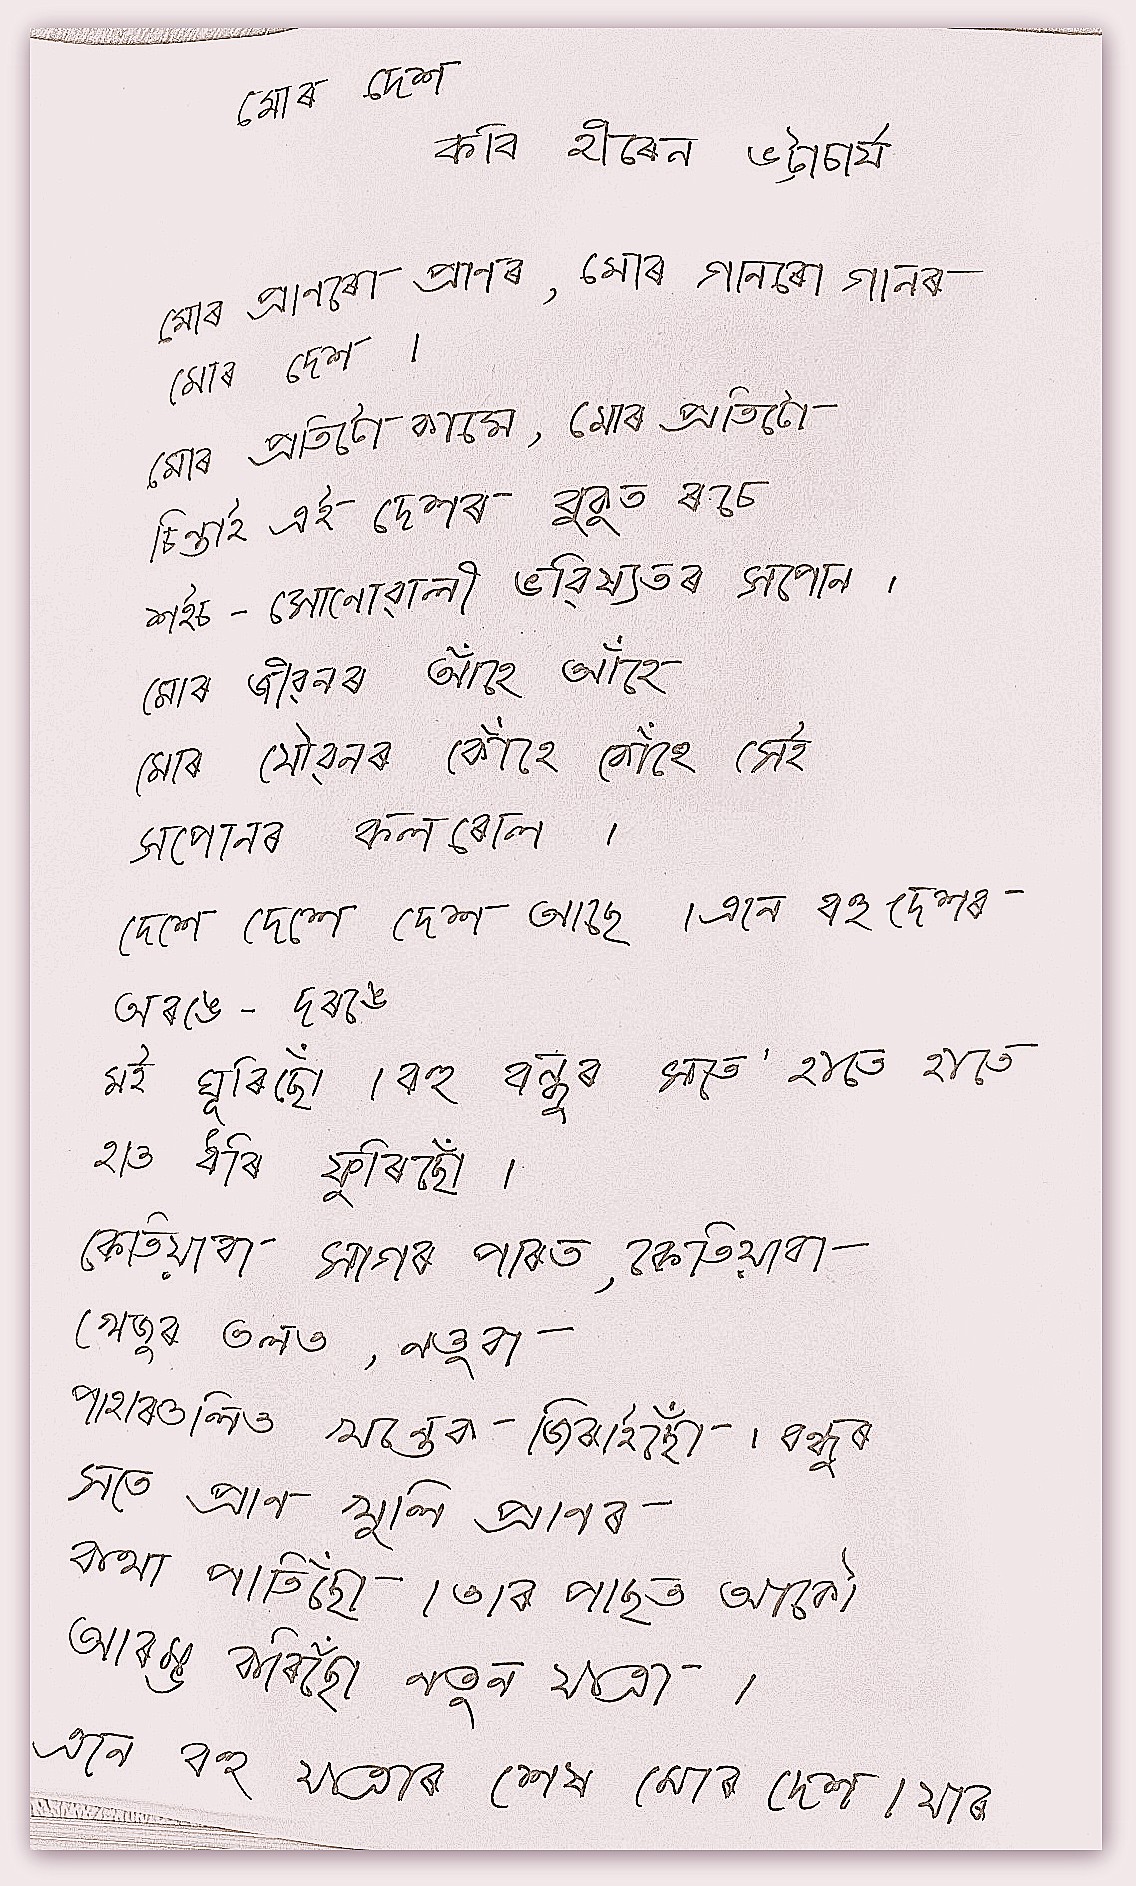 মোৰ দেশ
কবি হীৰেন ভট্টাচাৰ্য
মোৰ প্ৰাণৰো প্ৰাণৰ, মোৰ গানৰো গানৰ
মোৰ দেশ ।
মোৰ প্ৰতিটো কামে, মোৰ প্ৰতিটো
চিন্তাই এই দেশৰ বুকুত ৰচে
শইচ - সোনোৱালী ভৱিষ্যতৰ সপোন ।
মোৰ জীৱনৰ আঁহে আঁহে
মোৰ যৌৱনৰ কোঁহে কোঁহে সেই
সপোনৰ কলৰোল ।
দেশে দেশে দেশ আছে । এনে বহু দেশৰ
অৰঙে - দৰঙে
মই ঘূৰিছোঁ । বহু বন্ধুৰ সতে' হাতে হাতে
হাত ধৰি ফুৰিছোঁ ।
কেতিয়াবা সাগৰ পাৰত, কেতিয়াবা
খেজুৰ তলত, নতুবা
পাহাৰতলিত খন্তেক জিৰাইছোঁ । বন্ধুৰ
সতে প্ৰাণ খুলি প্ৰাণৰ
কথা পাতিছোঁ । তাৰ পাছত আকৌ
আৰম্ভ কৰিছোঁ নতুন যাত্ৰা ।
এনে বহু যাত্ৰাৰ শেষ মোৰ দেশ । যাৰ